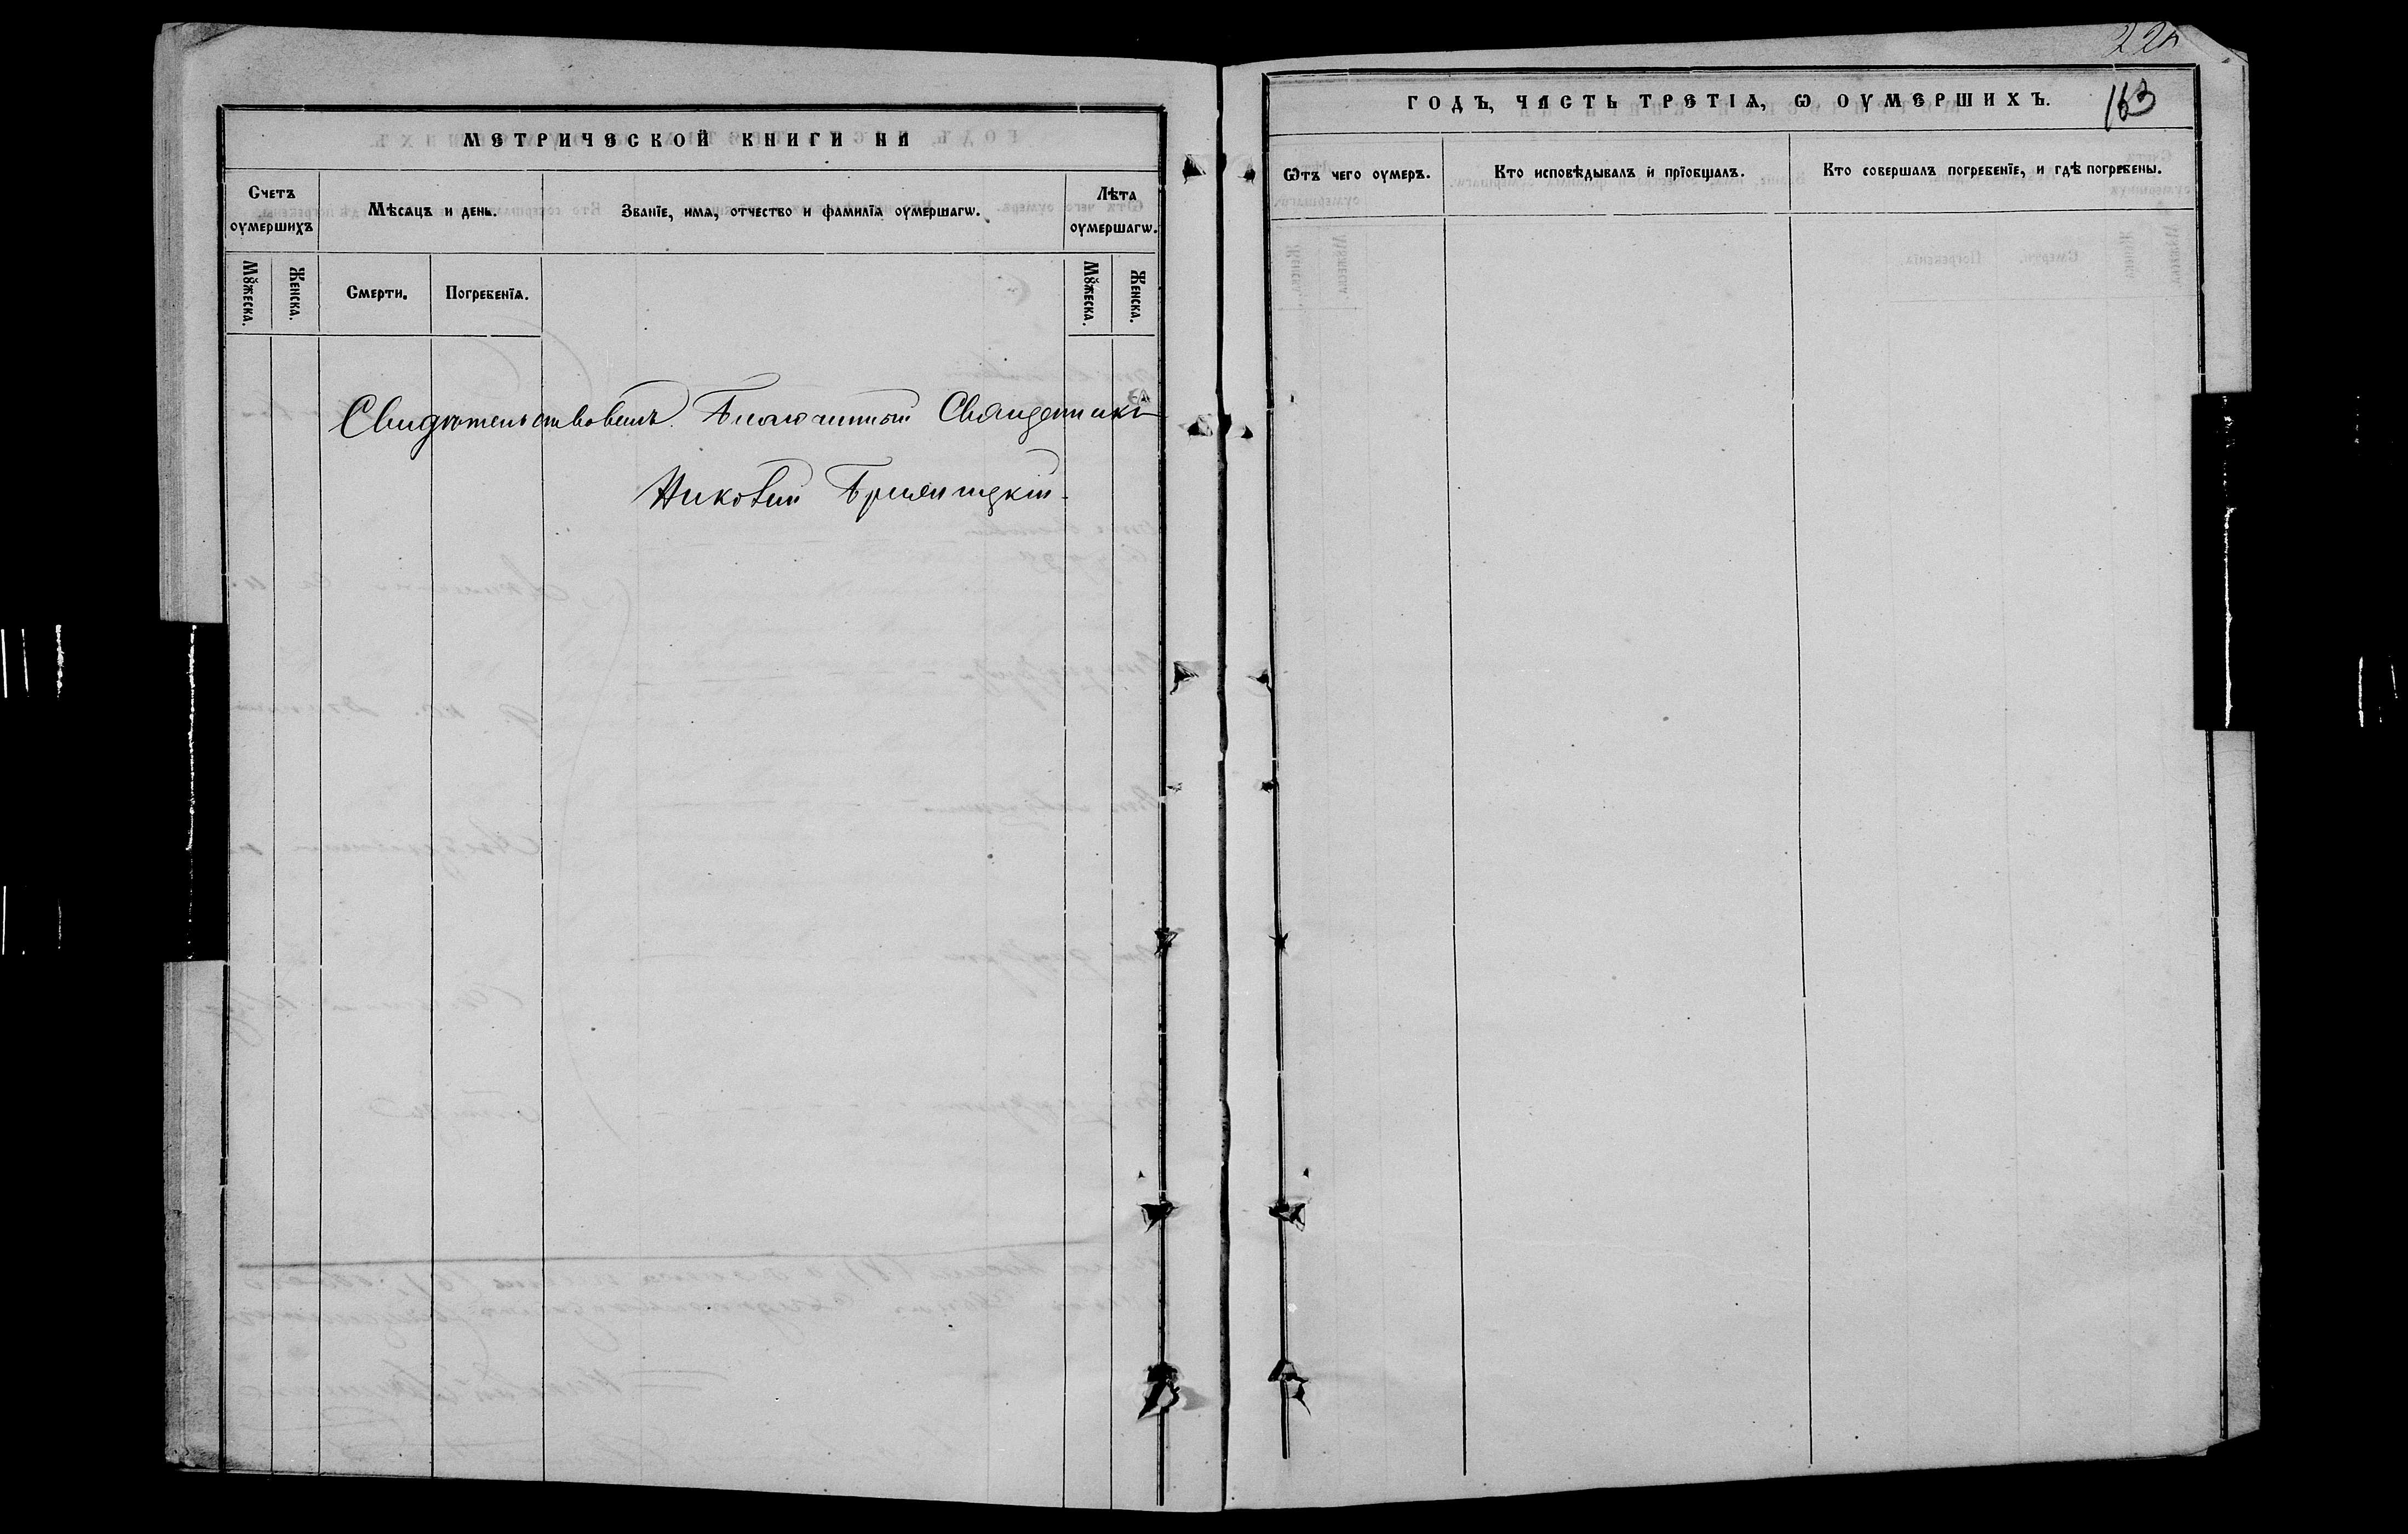 МЕТРИЧЕСКОЙ КНИГИ НА
Счетъ оумершихъ
Мѣсяцъ и день.
Званїе, имѧ, отчество и фамилїѧ оумершагѡ.
Лѣта оумершагѡ.
Мꙋжеска.
Женска.
Смерти.
Погребенїѧ.
Мꙋжеска.
Женска.
Свидѣтельствовалъ Благочинный Священникъ
22
ГОДЪ, ЧАСТЬ ТРЕТІѦ, Ѡ ОУМЕРШИХЪ.
163
Ѿтъ чего оумеръ.
Кто исповѣдывалъ и прїобщалъ.
Кто совершалъ погребенїе, и гдѣ погребены.